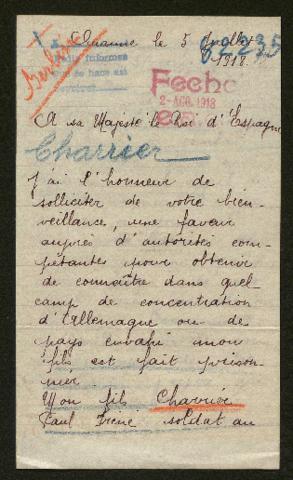 le 5 Juillet
1918.
62235
Berlin
Pedir informes
Fecha
2-AGO.1918
A sa Majesté le Roi d'Espagne
Charrier
J'ai l'honneur de
solliciter de votre bien-
veillance, une faveur
auprès d'autorités com-
pétantes pour obtenir
de connaître dans quel
camp de concentration
d'Allemagne ou de
pays envahi mon
fils est fait prison-
nier
Mon fils Charrier
Paul Irène soldat au